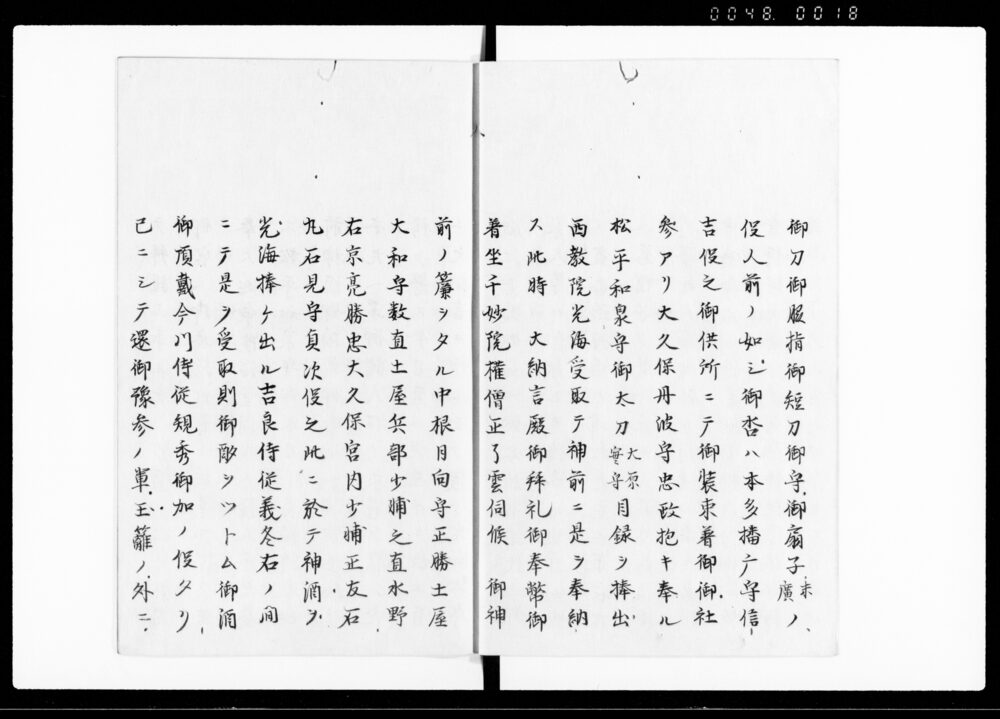 0048. 0018
御刀御服指御短刀御守御扇子末廣ノ
役人前ノ如シ御沓ハ本多播广守信
吉役之御供所ニテ御装束着御御社
参アリ大久保丹波守忠政抱キ奉ル
松平和泉守御太刀大原実守目録ヲ捧出
西教院光海受取テ神前ニ是ヲ奉納
ス此時 大納言殿御拜礼御奉幣御
着坐千妙院権僧正了雲伺候 御神
前ノ簾ヲタル中根日向守正勝土屋
大和守数直土屋兵部少輔之直水野
右京亮勝忠大久保宮内少輔正友石
九石見守貞次役之此ニ於テ神酒ヲ
光海捧ケ出ル吉良侍従義冬右ノ間
ニテ是ヲ受取則御酌ヲツトム御酒
御頂戴今川侍従規秀御加ノ役タリ
已ニシテ還御豫参ノ軍玉籬ノ外ニ